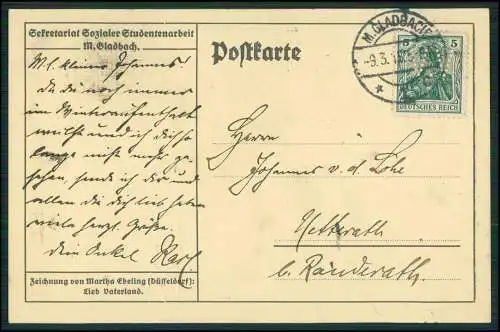 Sekretariat Sozialer Studentenarbeit
M. Gladbach.
Postkarte
M. GLADBACH
-9.3.
5 5
DEUTSCHES REICH
M. l. kleiner Johannes!
Da du noch immer
im Winteraufenthalt
weilst und ich dich so
lange nicht mehr ge-
sehen, sende ich dir und
allen die dich lieb haben
viele herzl. Grüße.
Dein Onkel Karl.
Herrn
Johannes v. d. Lohe
Uetterath
b. Randerath.
Zeichnung von Martha Ebeling (Düsseldorf):
Lieb Vaterland.